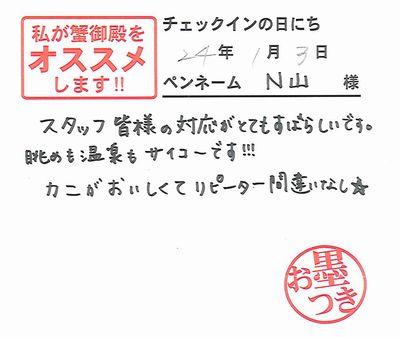 私が蟹御殿を
オススメ
します!!
チェックインの日にち
24年 1月 3日
ペンネーム N山 様
スタッフ皆様の対応がとてもすばらしいです。
眺めも温泉もサイコーです!!!
カニがおいしくてリピーター間違いなし★
お墨つき